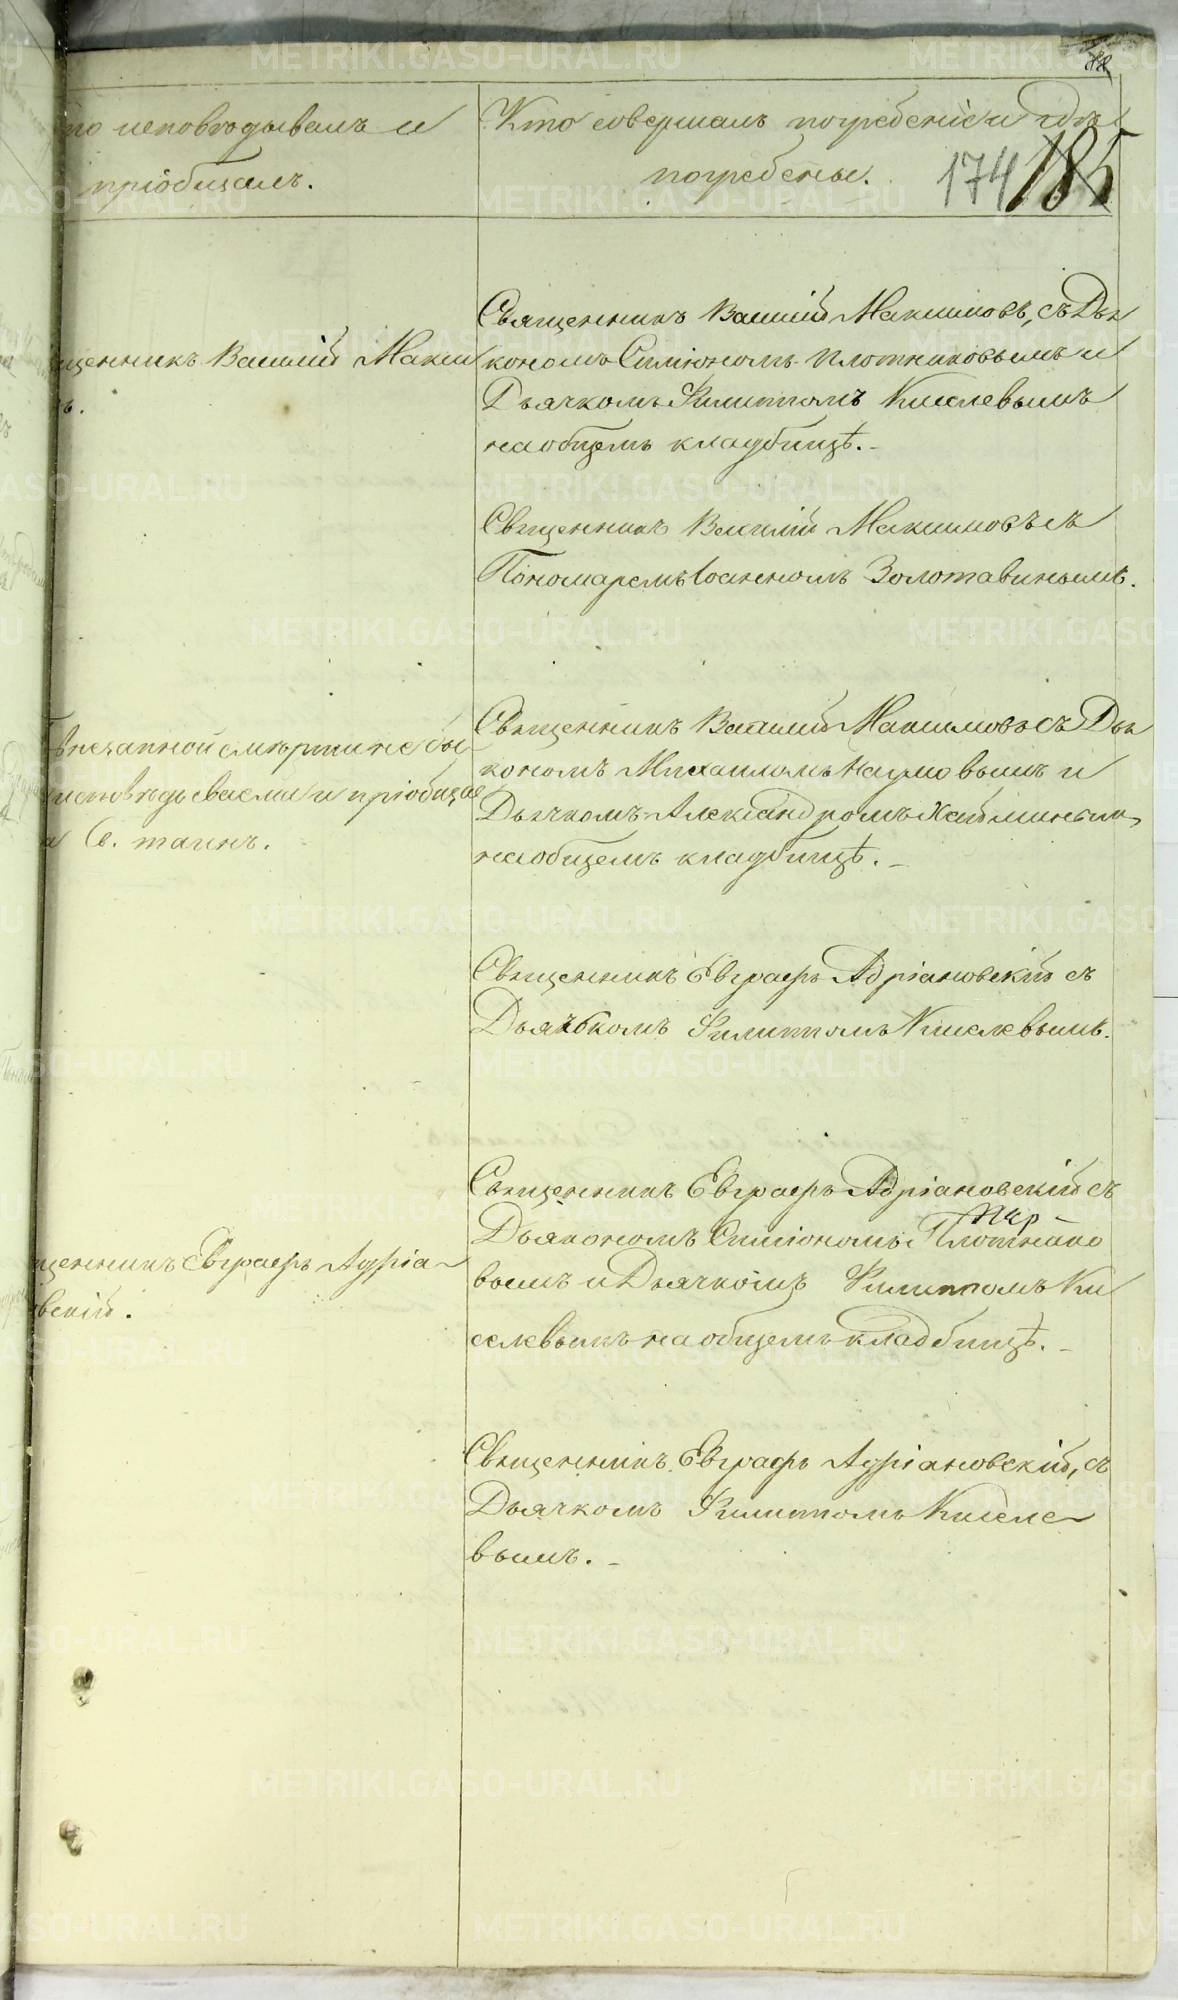 то исповѣдывалъ и
пріобщалъ.
Кто совершалъ погребеніе и гдѣ
погребены.
174 185
щенникъ Василій Макси
ъ.
Священникъ Василій Максимовъ, съ Дья
кономъ Симіономъ Плотниковымъ и
Дьячкомъ Филиппомъ Киселевымъ
на общемъ кладбищѣ.
Священникъ Василій Максимовъ съ
Пономаремъ Іоанномъ Золотавинымъ.
внезапной смерти не бы
исповѣдываемы и пріобща
Св. таинъ.
Священникъ Василій Максимовъ съ Дья
кономъ Михаиломъ Наумовымъ и
Дьячкомъ Александромъ
на общемъ кладбищѣ.
Священникъ Евграфъ Адріановскій съ
Дьячкомъ Филиппомъ Киселевымъ.
щенникъ Евграфъ Адріа-
вскій.
Священникъ Евграфъ Адріановскій съ
Дьякономъ Симіономъ Плотнико
вымъ и Дьячкомъ Филиппомъ Ки
селевымъ на общемъ кладбищѣ.
Священникъ Евграфъ Адріановскій, съ
Дьячкомъ Филиппомъ Киселе
вымъ.
METRIKI.GASO-URAL.RU